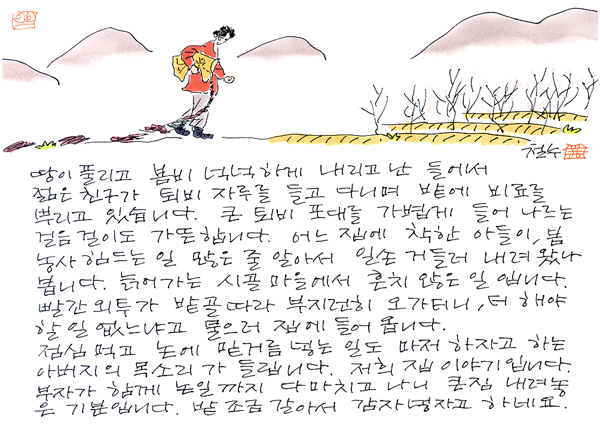 철수
땅이 풀리고 봄비 넉넉하게 내리고 난 들에서
젊은 친구가 퇴비 자루를 들고 다니며 밭에 비료를
뿌리고 있습니다. 큰 퇴비 포대를 가볍게 들어 나르는
걸음걸이도 가뜬합니다. 어느 집에 착한 아들이, 봄
농사 힘드는 일 많은 줄 알아서 일손 거들러 내려왔나
봅니다. 늙어가는 시골 마을에서 흔치 않은 일입니다.
빨간 외투가 밭골 따라 부지런히 오가더니, 더 해야
할 일 없느냐고 물으러 집에 들어옵니다.
점심 먹고 논에 밑거름 넣는 일도 마저 하자고 하는
아버지의 목소리가 들립니다. 저희 집 이야기입니다.
부자가 함께 논일까지 다 마치고 나니 큰짐 내려놓
은 기분입니다. 밭 조금 갈아서 감자 넣자고 하네요.